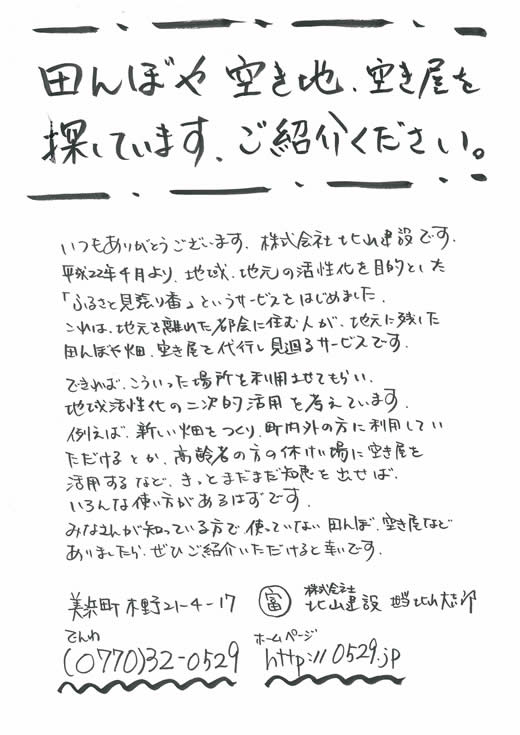 田んぼや 空き地、空き屋を
探しています、ご紹介ください。
いつもありがとうございます、株式会社北山建設です、
平成22年4月より、地域、地元の活性化を目的とした
「ふるさと見張り番」というサービスをはじめました、
これは、地元を離れた都会に住む人が、地元に残した
田んぼや畑、空き屋を代行し見廻るサービスです、
できれば、こういった場所を利用させてもらい、
地域活性化の二次的活用を考えています、
例えば、新しい畑をつくり、町内外の方に利用してい
ただけるとか、高齢者の方の休けい場に空き屋を
活用するなど、きっとまだまだ知恵を出せば、
いろんな使い方があるはずです、
みなさんが知っている方で使っていない田んぼ、空き屋など
ありましたら、ぜひご紹介いただけると幸いです、
美浜町木野21-4-17 富 株式会社 北山建設 担当北山大志郎
でんわ ホームページ
(0770)32-0529 http://0529.jp